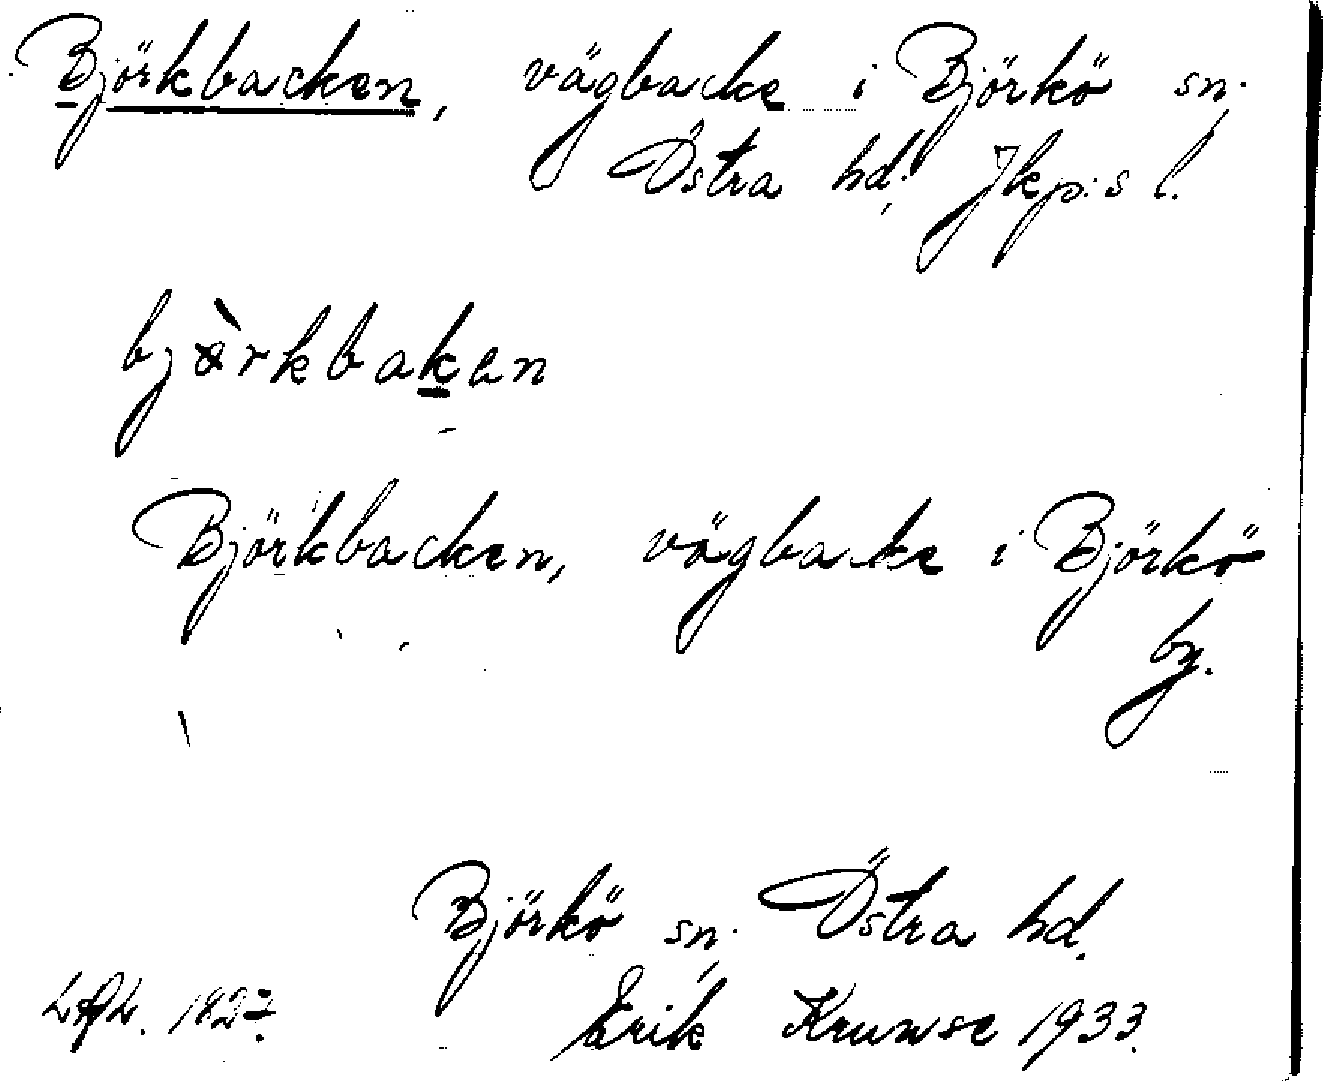 Björkbacken, vägbacke i Björkö sn.
Östra hd. Jkp:s l.
bjàrkbaken
Björkbacken, vägbacke i Björkö
by.
Björkö sn. Östra hd.
1827. Erik Kruwse 1933.